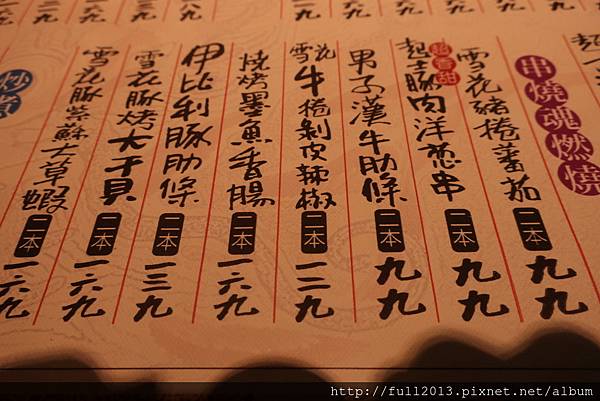 串燒魂燃燒
雪花豬捲蕃茄 二本 九九
超香甜
起士豚肉洋蔥串 二本 九九
男子漢牛肋條 二本 九九
雪花牛捲剝皮辣椒 二本 一二九
燒烤墨魚香腸 二本 一六九
伊比利豚肋條 二本 一三九
雪花豚烤大干貝 二本 一六九
雪花豚紫蘇大草蝦 二本 一六九
http://full2013.pixnet.net/album